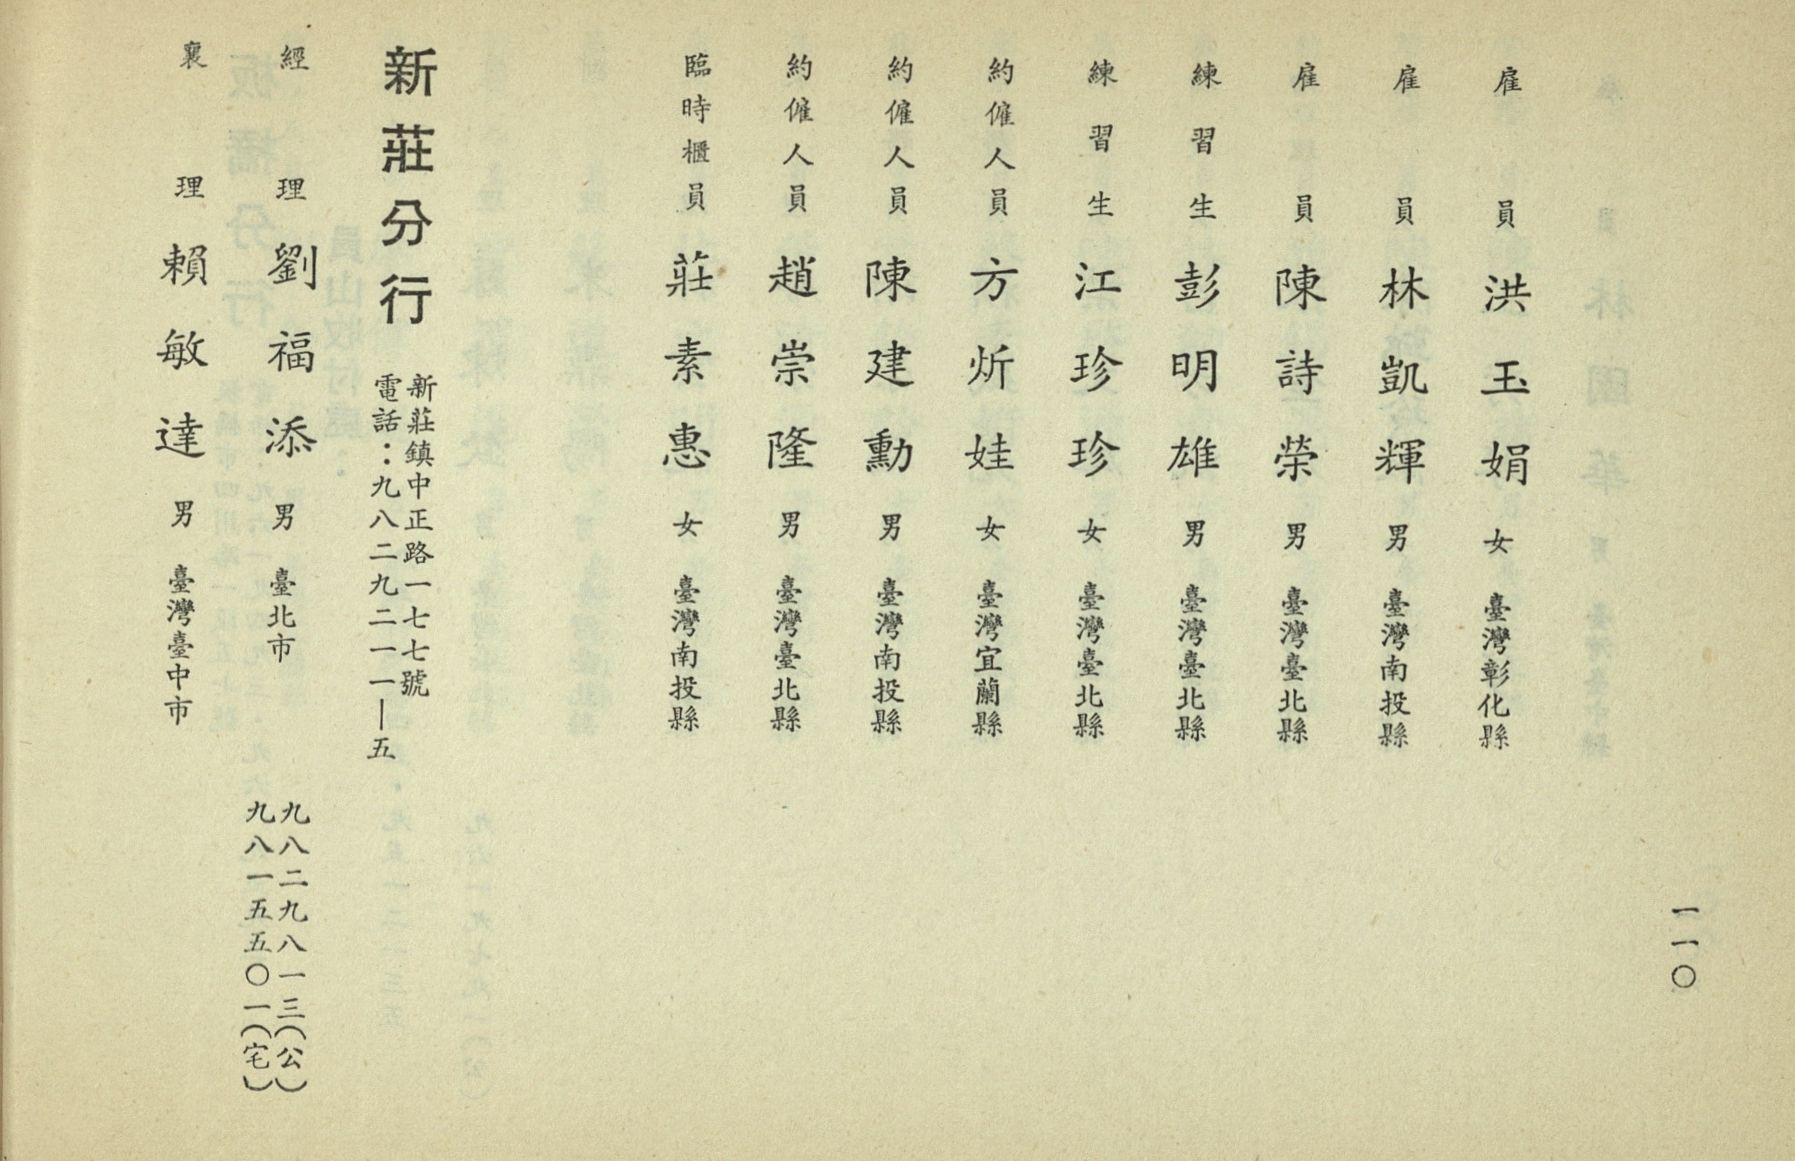 一一〇
雇員 洪玉娟 女 臺灣彰化縣
雇員 林凱輝 男 臺灣南投縣
雇員 陳詩榮 男 臺灣臺北縣
練習生 彭明雄 男 臺灣臺北縣
練習生 江珍珍 女 臺灣臺北縣
約僱人員 方炘娃 女 臺灣宜蘭縣
約僱人員 陳建勳 男 臺灣南投縣
約僱人員 趙崇隆 男 臺灣臺北縣
臨時櫃員 莊素惠 女 臺灣南投縣
新莊分行
新莊鎮中正路一七七號
電話：九八二九二一一—五
經理 劉福添 男 臺北市
九八二九八一三(公)
九八一五五〇一(宅)
襄理 賴敏達 男 臺灣臺中市